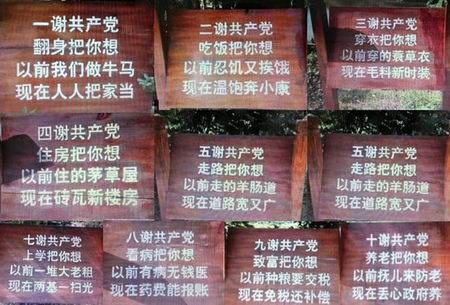 一谢共产党
翻身把你想
以前我们做牛马
现在人人把家当
二谢共产党
吃饭把你想
以前忍饥又挨饿
现在温饱奔小康
三谢共产党
穿衣把你想
以前穿的蓑草衣
现在毛料新时装
四谢共产党
住房把你想
以前住的茅草屋
现在砖瓦新楼房
五谢共产党
走路把你想
以前走的羊肠道
现在道路宽又广
五谢共产党
走路把你想
以前走的羊肠道
现在道路宽又广
七谢共产党
上学把你想
以前一堆大老粗
现在两基一扫光
八谢共产党
看病把你想
以前有病无钱医
现在药费能报账
九谢共产党
致富把你想
以前种粮要交税
现在免税还补偿
十谢共产党
养老把你想
以前抚儿来防老
现在丢心政府养